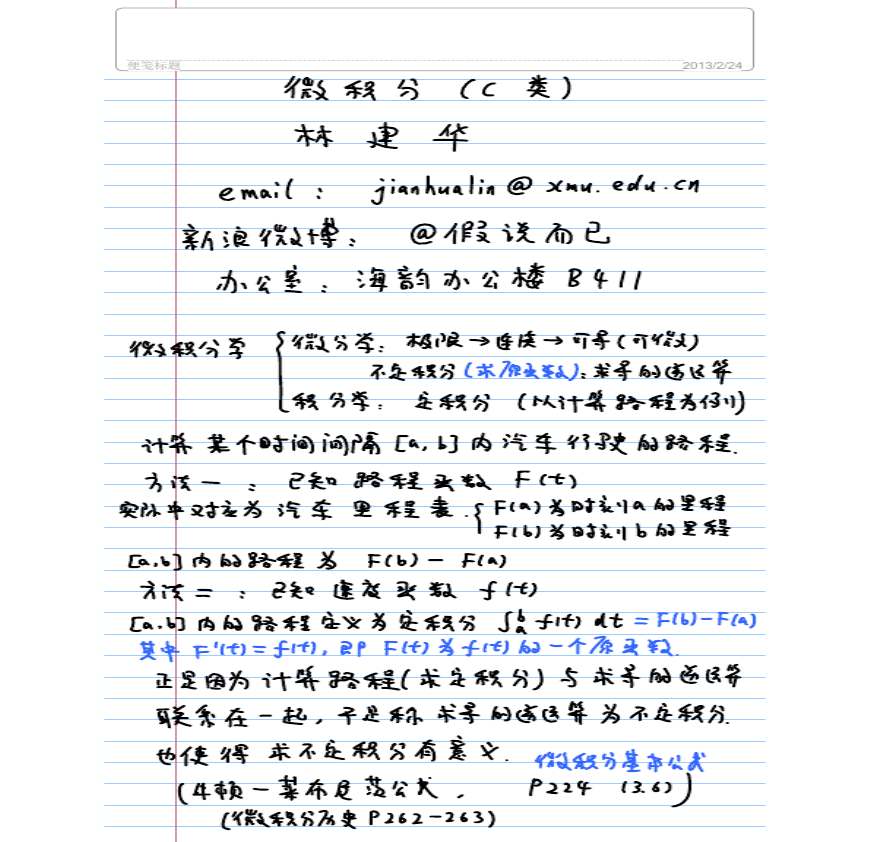 便笺标题
2013/2/24
微积分 (C 类)
林建华
email: jianhualin@xmu.edu.cn
新浪微博: @假说而已
办公室: 海韵办公楼 B411
微积分学 { 微分学: 极限→连续→可导(可微)
不定积分(求原函数): 求导的逆运算
积分学: 定积分 (以计算路程为例)
计算某个时间间隔 [a,b] 内汽车行驶的路程.
方法一: 已知路程函数 F(t)
实际中对应为汽车里程表. { F(a)为时刻a的里程
F(b)为时刻b的里程
[a,b] 内的路程为 F(b) - F(a)
方法二: 已知速度函数 f(t)
[a,b] 内的路程定义为定积分 ∫_a^b f(t) dt = F(b)-F(a)
其中 F'(t)=f(t), 即 F(t) 为 f(t) 的一个原函数.
正是因为计算路程(求定积分)与求导的逆运算
联系在一起, 于是称求导的逆运算为不定积分.
也使得求不定积分有意义.
微积分基本公式
(牛顿-莱布尼茨公式, P224 (3.6))
(微积分历史 P262-263)